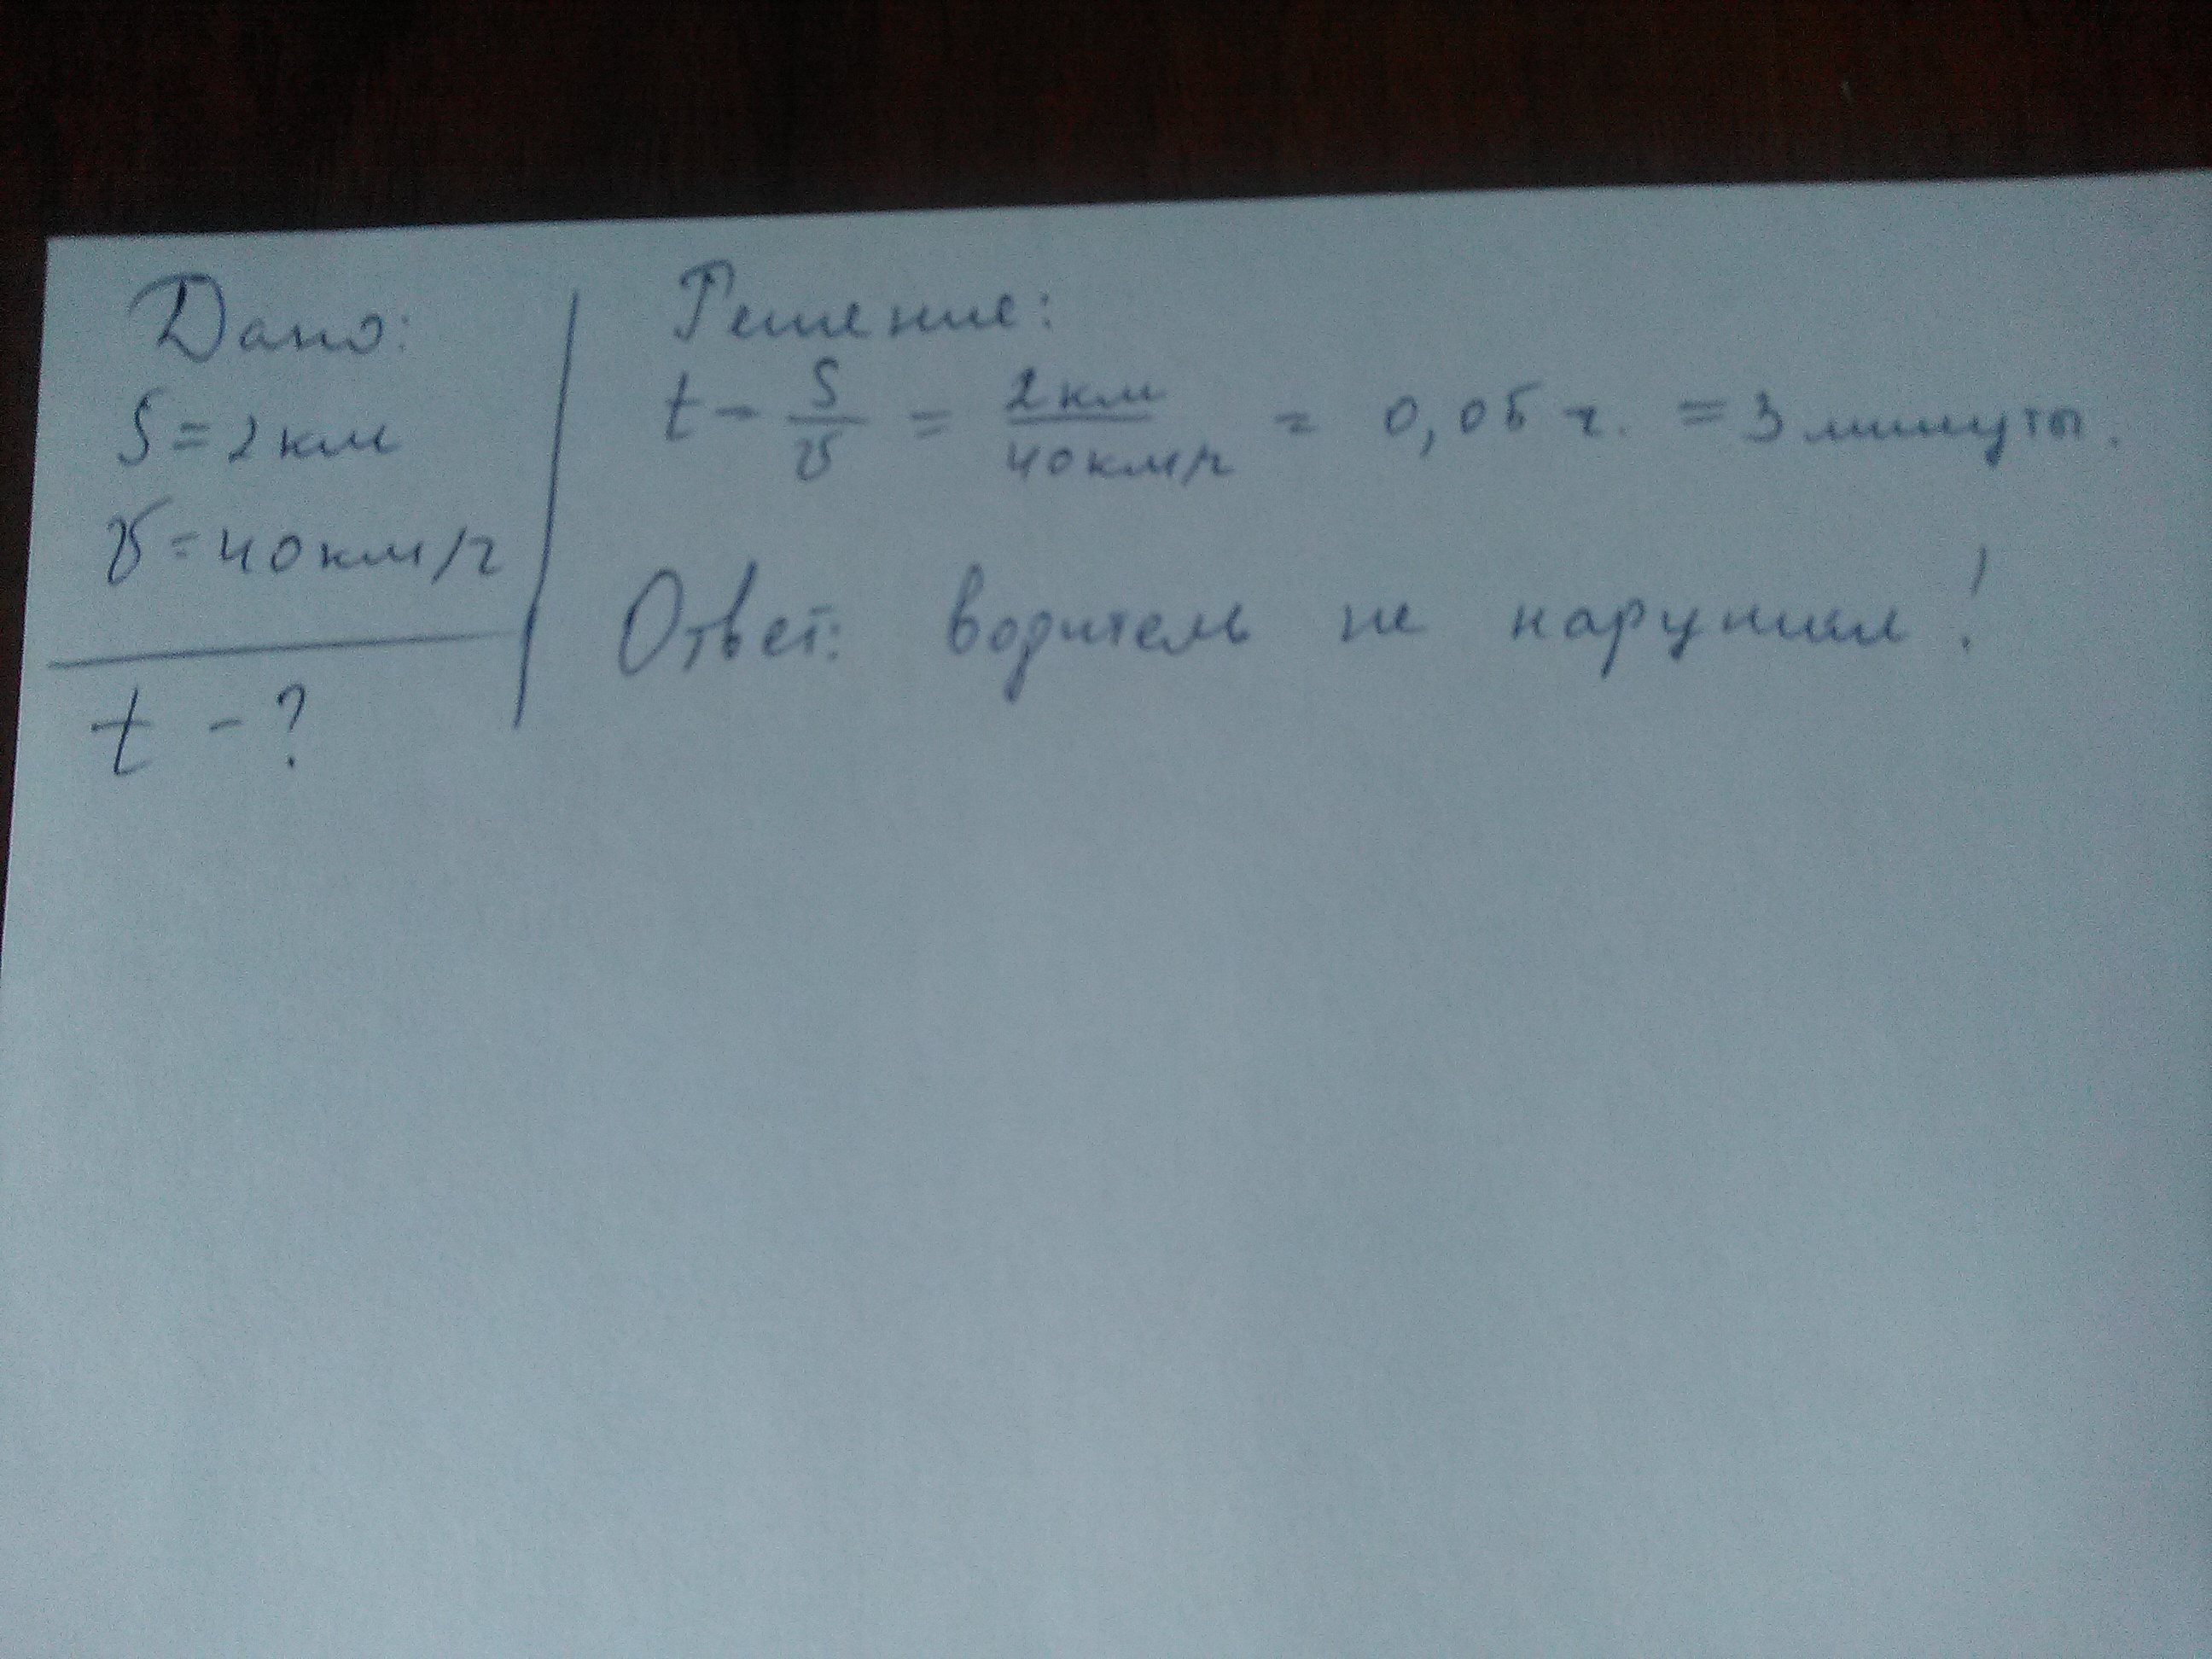 Дано:
S = 2 км
v = 40 км/ч
t - ?
Решение:
t - S/v = 2 км/40 км/ч = 0,05 ч. = 3 минуты.
Ответ: водитель не нарушил!